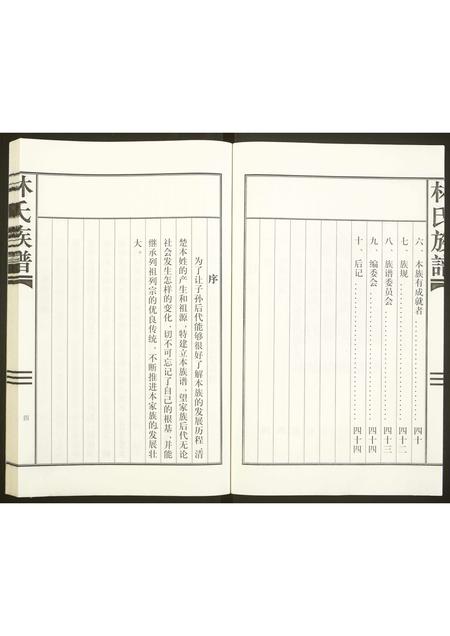 林氏族譜
六、本族有成就者……………………四十
七、族规……………………四十二
八、族谱委员会……………………四十三
九、编委会……………………四十四
十、后记……………………四十四
序
为了让子孙后代能够很好了解本族的发展历程 清
楚本姓的产生和祖源,特建立本族谱,望家族后代无论
社会发生怎样的变化,切不可忘记了自己的根基,并能
继承列祖列宗的优良传统,不断推进本家族的发展壮
大。
林氏族譜
四